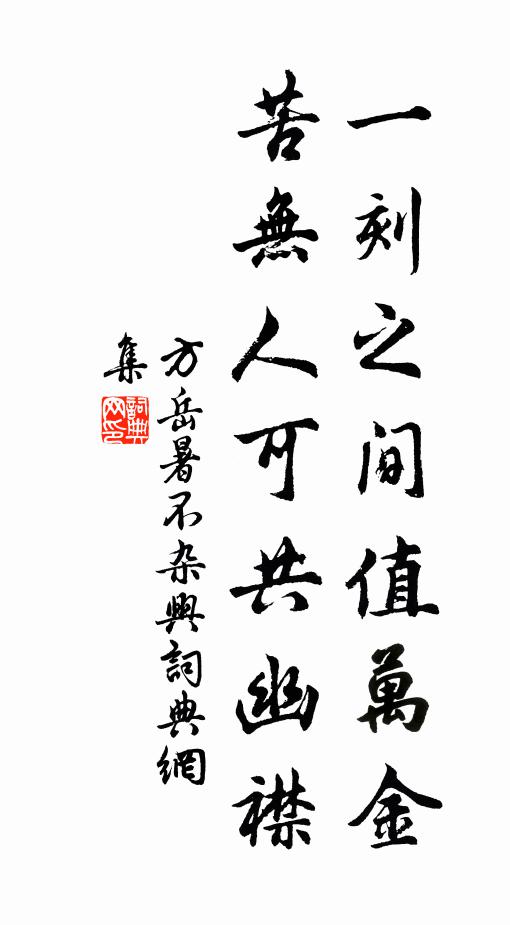 一刻之间值萬金
苦無人可共幽襟
方岳暑不杂興詞典網
集
詞典
网印